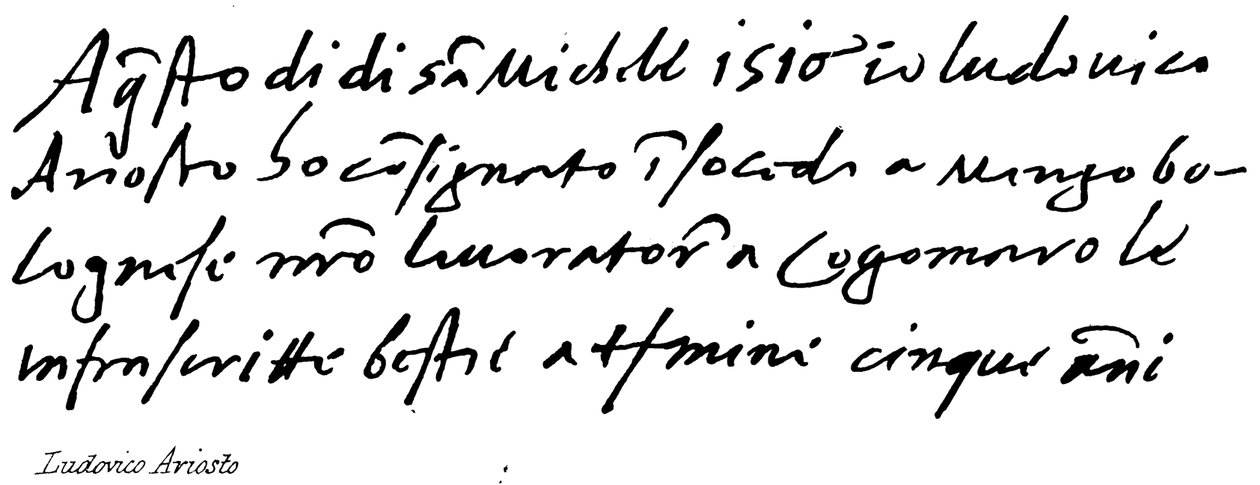 Aḡsto di di sā Michele 1510 io ludovico
Ariosto ho cōsignato ī soceda a Mengo bo-
lognese nr̄o lavorator̄ a Cogomaro le
infrascritte bestie a termine cinque āni
Ludovico Ariosto